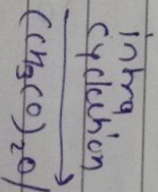 intra
cyclection
(CH3CO)2O/